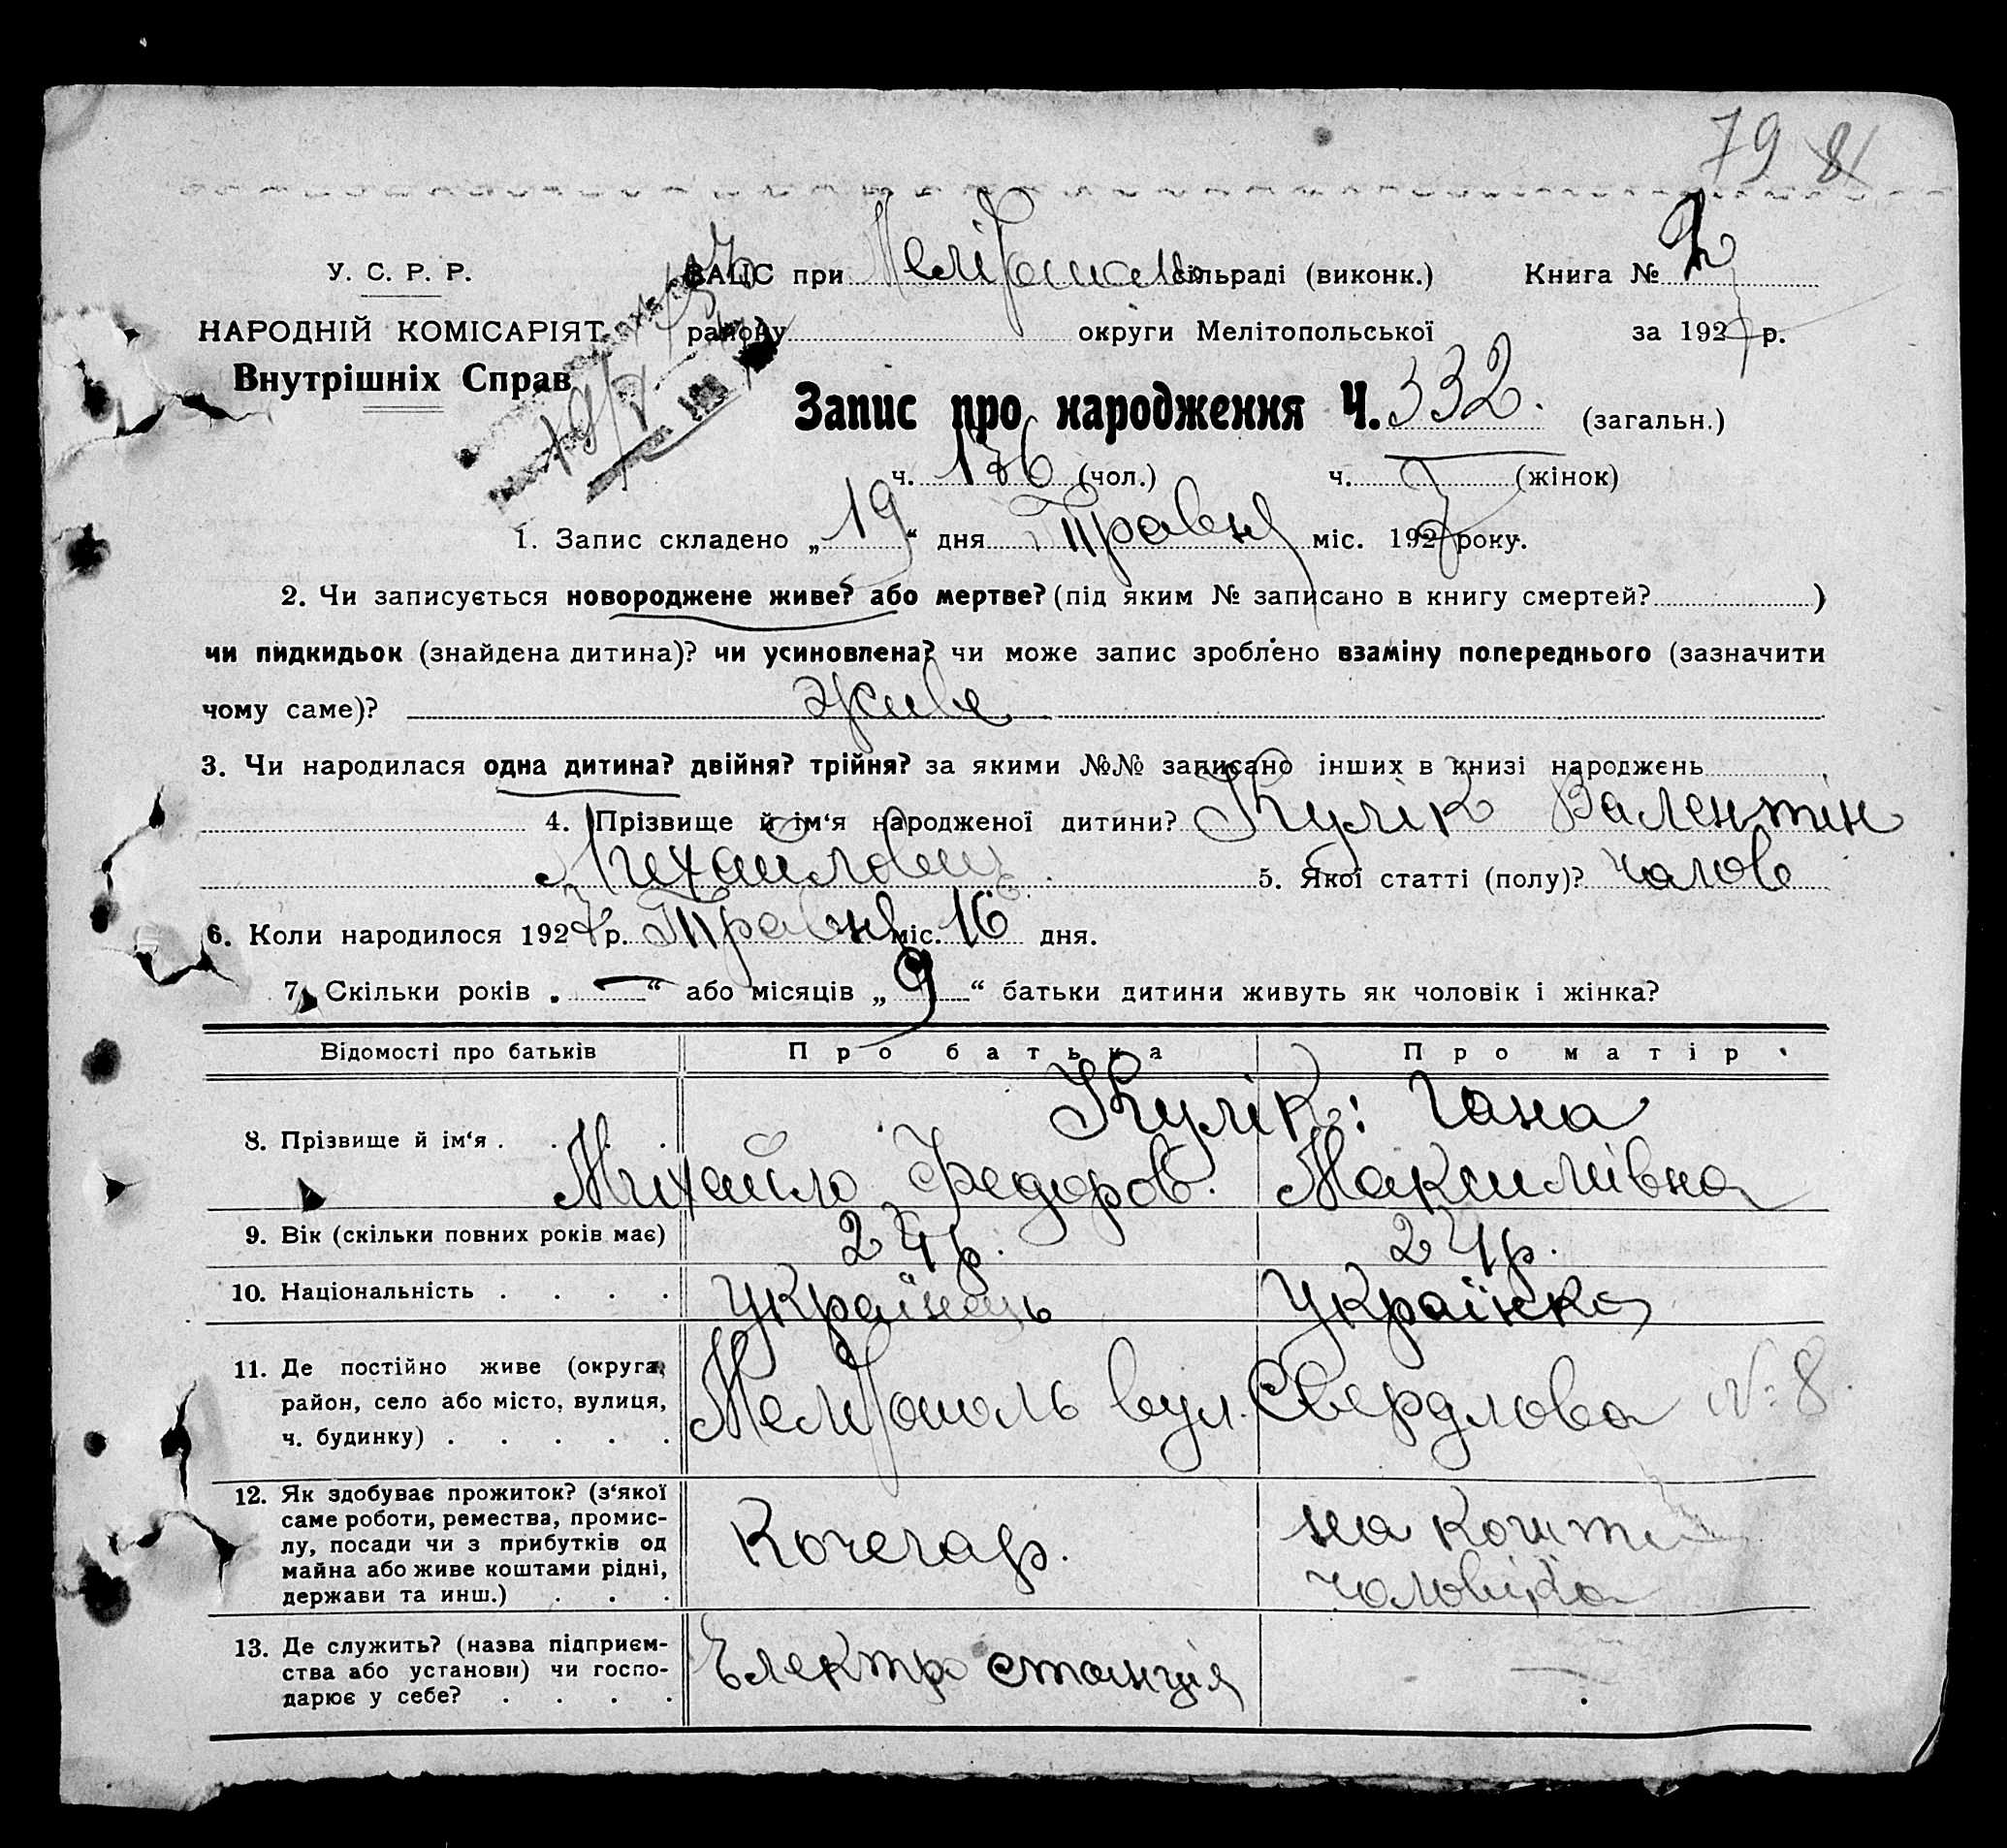 79 81
У. С. Р. Р.
НАРОДНІЙ КОМІСАРІЯТ
Внутрішніх Справ
ЗАЦС при Мелітопольськ сільраді (виконк.) Книга № 2
району округи Мелітопольської за 1927 р.
Запис про народження Ч. 332. (загальн.)
ч. 176 (чол.) ч. (жінок)
1. Запис складено „19“ дня Травня міс. 1927 року.
2. Чи записується новороджене живе? або мертве? (під яким № записано в книгу смертей? )
чи пидкидьок (знайдена дитина)? чи усиновлена? чи може запис зроблено взаміну попереднього (зазначити
чому саме)? живе
3. Чи народилася одна дитина? двійня? трійня? за якими №№ записано інших в книзі народжень
4. Прізвище й ім‘я народженої дитини? Кулік Валентін
Михайлович 5. Якої статті (полу)? чолов
6. Коли народилося 1927 р. Травня міс. 16 дня.
7. Скільки років „—“ або місяців „9“ батьки дитини живуть як чоловік і жінка?
Відомості про батьків Про батька Про матір
8. Прізвище й ім‘я . . . . Кулік: Гана
Михайло Федоров. Максимівна
9. Вік (скільки повних років має) 24 р. 24 р.
10. Національність . . . . Українець Українка
11. Де постійно живе (округа,
район, село або місто, вулиця,
ч. будинку) . . . . . Мелітополь вул. Свердлова № 8.
12. Як здобуває прожиток? (з‘якої
саме роботи, ремества, промис-
лу, посади чи з прибутків од
майна або живе коштами рідні,
держави та инш.) . . . Кочегар. на кошти
чоловіка
13. Де служить? (назва підприєм-
ства або установи) чи госпо-
дарює у себе? . . . . Електро станція —